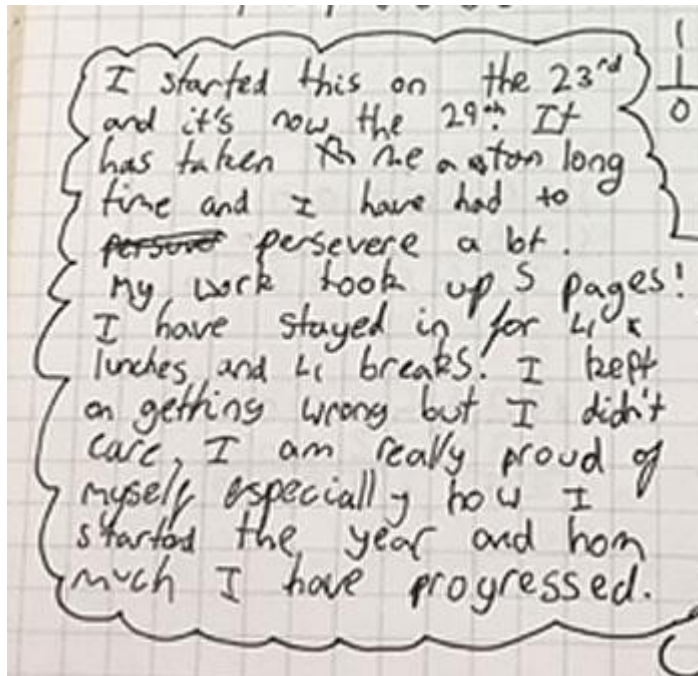 I started this on the 23rd
and it's now the 29th. It
has taken me a long
time and I have had to
persevere a lot.
My work took up 5 pages!
I have stayed in for 4
lunches and 4 breaks. I kept
on getting wrong but I didn't
care, I am really proud of
myself especially how I
started the year and how
much I have progressed.
1
1
0